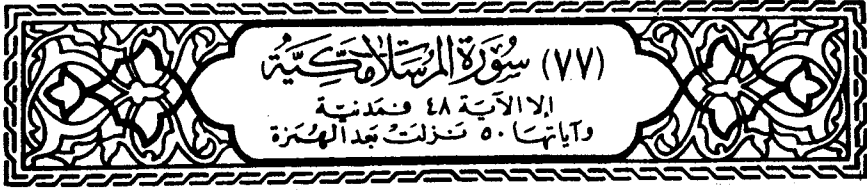 (٧٧) سُورَة المرسَلات مَكِيَّة
إلا الآيَة ٤٨ فمَدنيَّة
وآياتها ٥٠ نَزلَتْ بَعد الهُمَزة